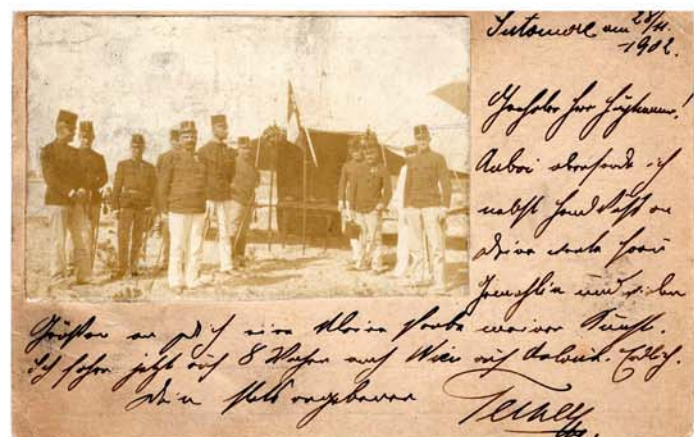 Sutomore am 28/11.
1902.
Geehrter Herr Hauptmann!
Anbei übersende ich
nebst Handkuß an
Deine werte Frau
Gemahlin und vielen
Grüßen an Dich eine kleine Probe meiner Kunst.
Ich fahre jetzt auf 8 Wochen nach Wien auf Urlaub. Endlich.
Dein stets ergebener